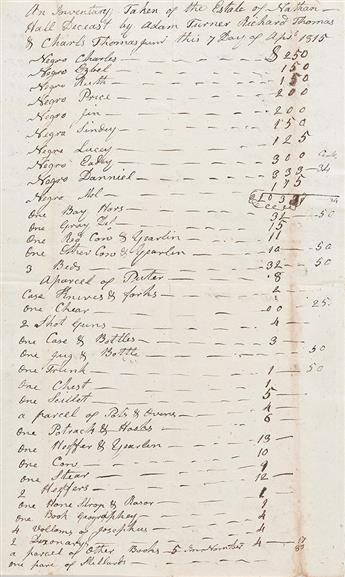 An Inventory Taken of the Estate of Nathan
Hall Deceast by Adam Turner Richard Thomas
& Charls Thomas this 7 Day of Apr 1815
Negro Charles $ 250
Negro 150
Negro Ruth 150
Negro Price 200
Negro Jin 200
Negro Sindey 150
Negro Lucey 125
Negro 300
Negro Danniel 333 34
Negro Mol 175
One Bay Hors 50
One Gray 15
One Red Cow & Yearlin 11
One Other Cow & Yearlin 10 50
3 Beds 32 50
A parcel of Puter 8
Case Knives & forks 2
One Chear 25
2 Shot Guns 4
One Case & Bottles 3
One Jug & Bottle 50
One Trunk 1 50
One Chest 1
One Scillet 5
a parcel of Pots & Ovens 4
One Potrack & 6
One Heffer & Yearlin 13
One Cow 10
One Stear 9
2 Heffers 12
One Hone Strop & Rasor 1
One Book Geographey 1
4 Volloms of Josephus 4
2 4
a parcel of Other Books
one pare of Stilliards